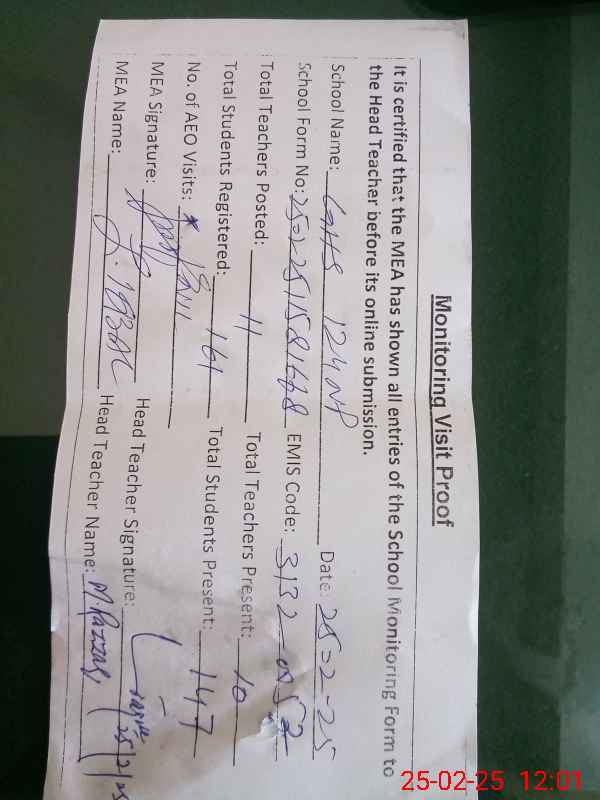 Monitoring Visit Proof
It is certified that the MEA has shown all entries of the School Monitoring Form to
the Head Teacher before its online submission.
School Name: 124 NP Date: 25-2-25
School Form No: EMIS Code:
Total Teachers Posted: 11 Total Teachers Present: 10
Total Students Registered: 161 Total Students Present: 147
No. of AEO Visits:
MEA Signature: Head Teacher Signature: 25/2/25
MEA Name: Head Teacher Name:
25-02-25 12:01